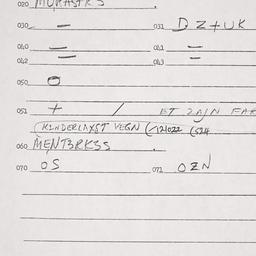 020 MURASTRS
030 — 031 DZ+UK
040 — 041 =
042 — 043 =
050 O
051 + / ET ZAJN FAR
(KINDERLAXST VEGN (/121022 (524
060 MENTBRKSS
070 OS 071 OZN